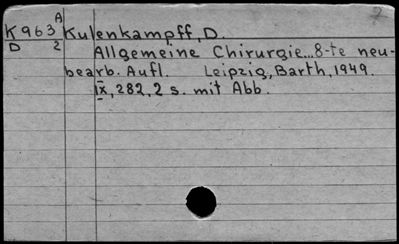 A
K 963 Kulenkampff, D.
D 2 Allgemeine Chirurgie...8-te neu-
bearb. Aufl. Leipzig, Barth, 1949.
IX, 282, 2 s. mit Abb.